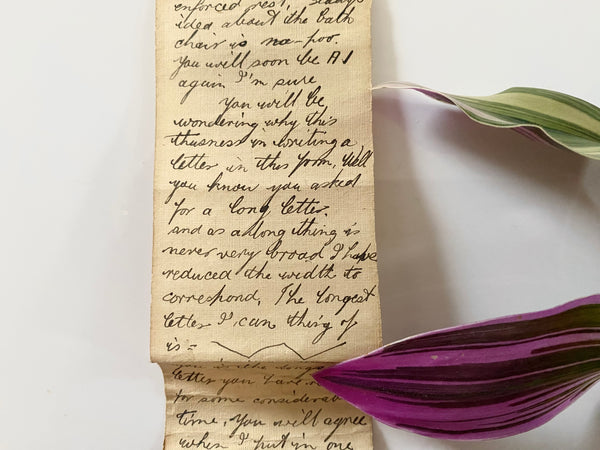 enforced rest,
idea about the bath
chair is na-poo.
You will soon be A1
again I'm sure
You will be
wondering why this
thusness in writing a
letter in this form. Well
you know you asked
for a long letter.
and as a long thing is
never very broad I have
reduced the width to
correspond. The longest
letter I can thing of
is =
letter you have
for some considerable
time. You will agree
when I put in one